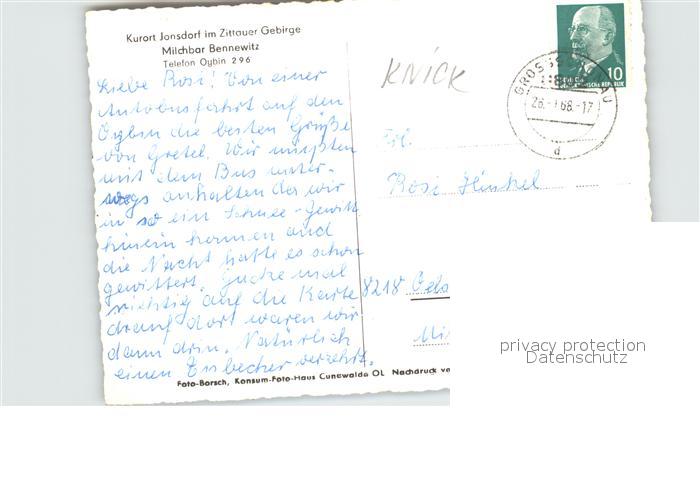 Kurort Jonsdorf im Zittauer Gebirge
Milchbar Bennewitz
Telefon Oybin 296
Liebe Rosi! Von einer
Autobusfahrt auf den
Oybin die besten Grüße
von Gretel. Wir mußten
mit dem Bus unter-
wegs anhalten da wir
in so ein Schnee-Gewitt.
hinein kamen und
die Nacht hatte es schon
gewittert. Gucke mal
richtig auf die Karte
drauf dort waren wir
dann drin. Natürlich
einen Eisbecher verzehrt.
Foto-Borsch, Konsum-Foto-Haus Cunewalde OL Nachdruck ve
KNICK
10
GROSSSCH AU
26. 68.-17
d
Frl.
Rosi Hinkel
8218 Oels
privacy protection
Datenschutz